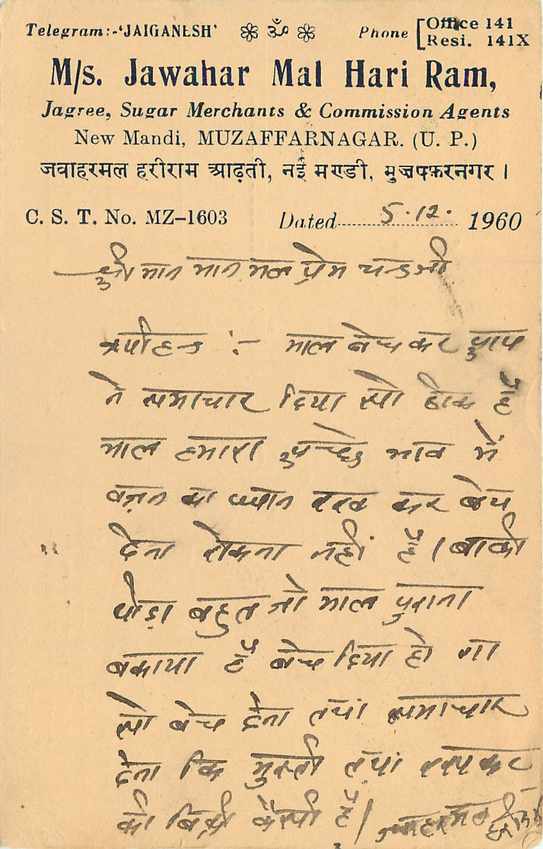 Telegram:-'JAIGANESH' ॐ Phone Office 141
Resi. 141X
M/s. Jawahar Mal Hari Ram,
Jagree, Sugar Merchants & Commission Agents
New Mandi, MUZAFFARNAGAR. (U. P.)
जवाहरमल हरीराम आढ़ती, नई मण्डी, मुज़फ़्फ़रनगर ।
C. S. T. No. MZ-1603 Dated 5·12· 1960
श्री मान मल प्रेम चन्द जी
:- माल बेच कर आप
ने समाचार दिया सो ठीक है
माल हमारा अच्छे भाव में
वज़न का ध्यान रख कर बेच
देना रोकना नहीं है। बाकी
थोड़ा बहुत जो माल पुराना
बकाया है बेच दिया हो गा
सो बेच देना तथा समाचार
देना कि तथा
की बिक्री कैसी है।